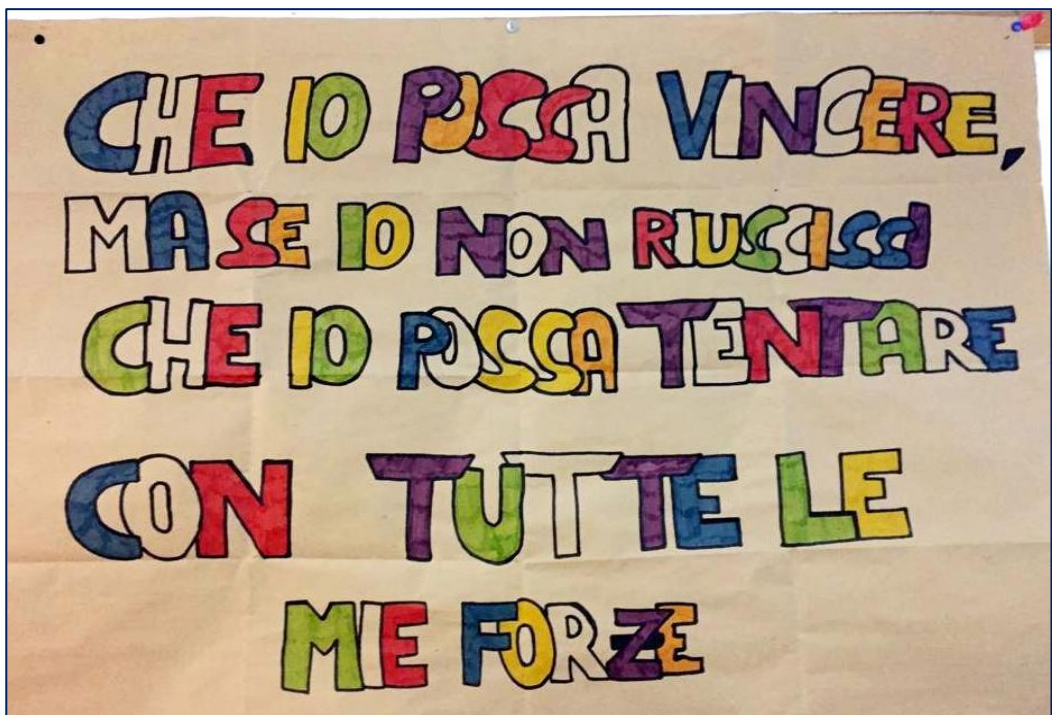 CHE IO POSSA VINCERE,
MA SE IO NON RIUSCISSI
CHE IO POSSA TENTARE
CON TUTTE LE
MIE FORZE